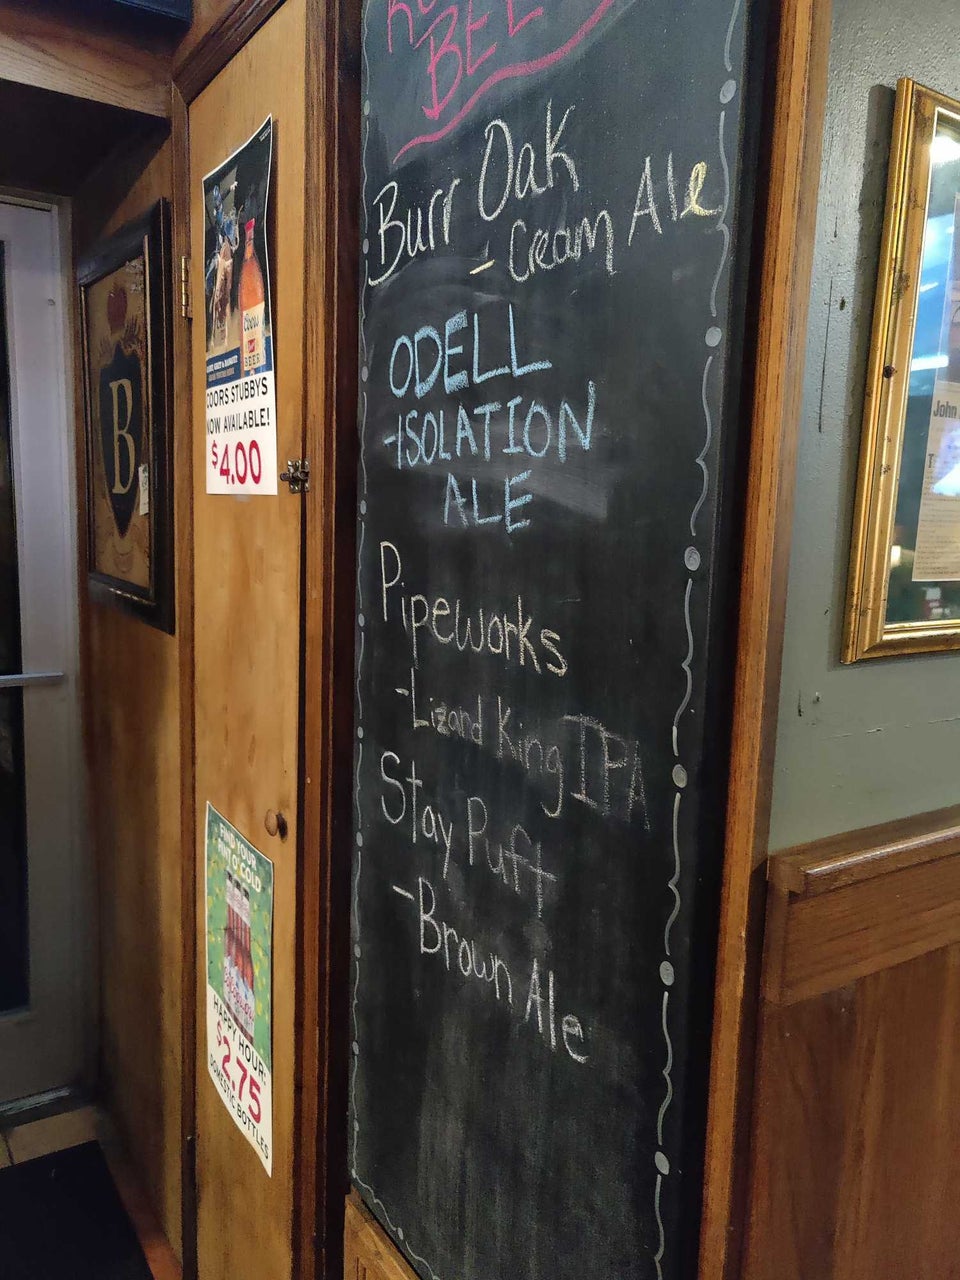 BEE
Burr Oak
- Cream Ale
ODELL
-ISOLATION
ALE
Pipeworks
-Lizard King IPA
Stay Puft
-Brown Ale
Coors
BEER
COORS STUBBYS
NOW AVAILABLE!
$4.00
B
FIND YOUR
COLD
HAPPY HOUR
$2.75
DOMESTIC BOTTLES
John